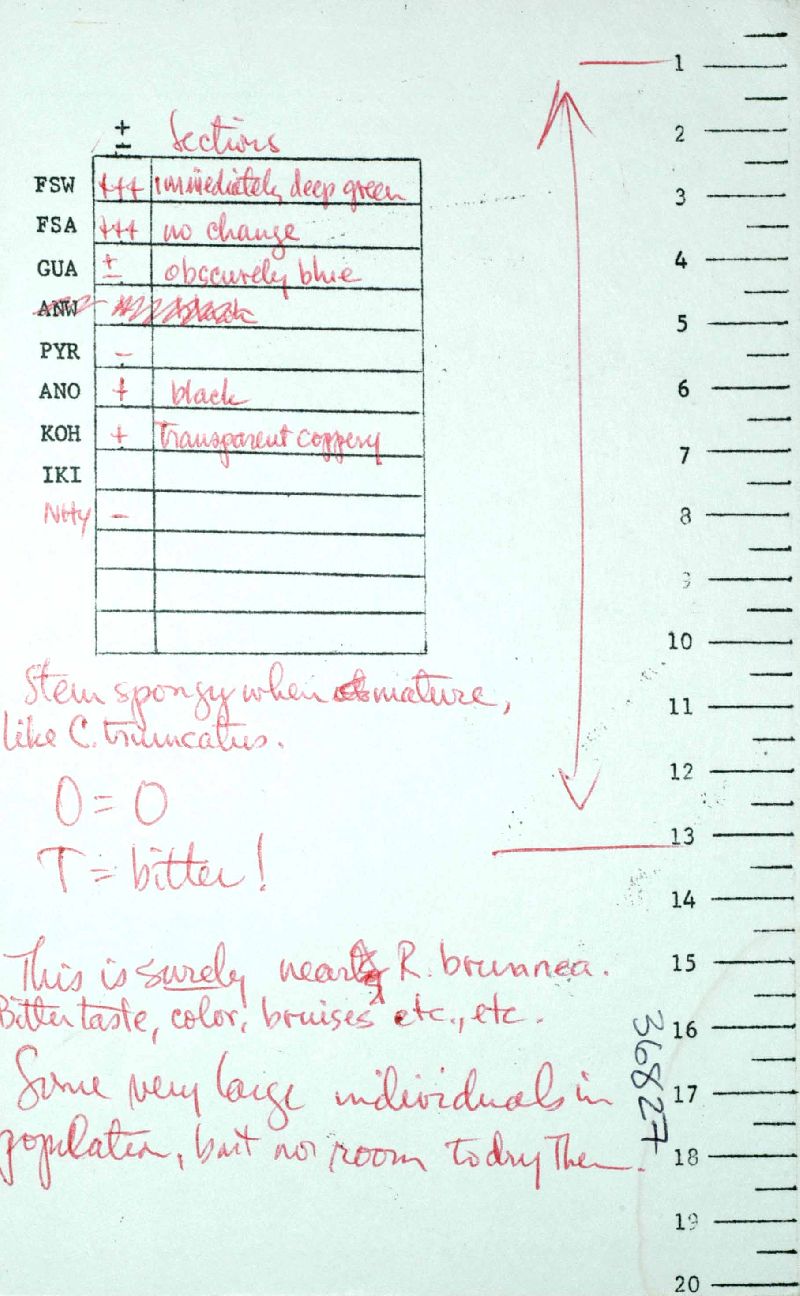 ± Sections
FSW +++ immediately deep green
FSA +++ no change
GUA ± obscurely blue
ANW
PYR -
ANO + black
KOH + transparent coppery
IKI
NH4 -
Stem spongy when mature,
like C. truncatus.
O = O
T = bitter!
This is surely near R. brunnea.
Bitter taste, color, bruises etc., etc.
Some very large individuals in
population, but no room to dry them.
36827
1
2
3
4
5
6
7
8
9
10
11
12
13
14
15
16
17
18
19
20